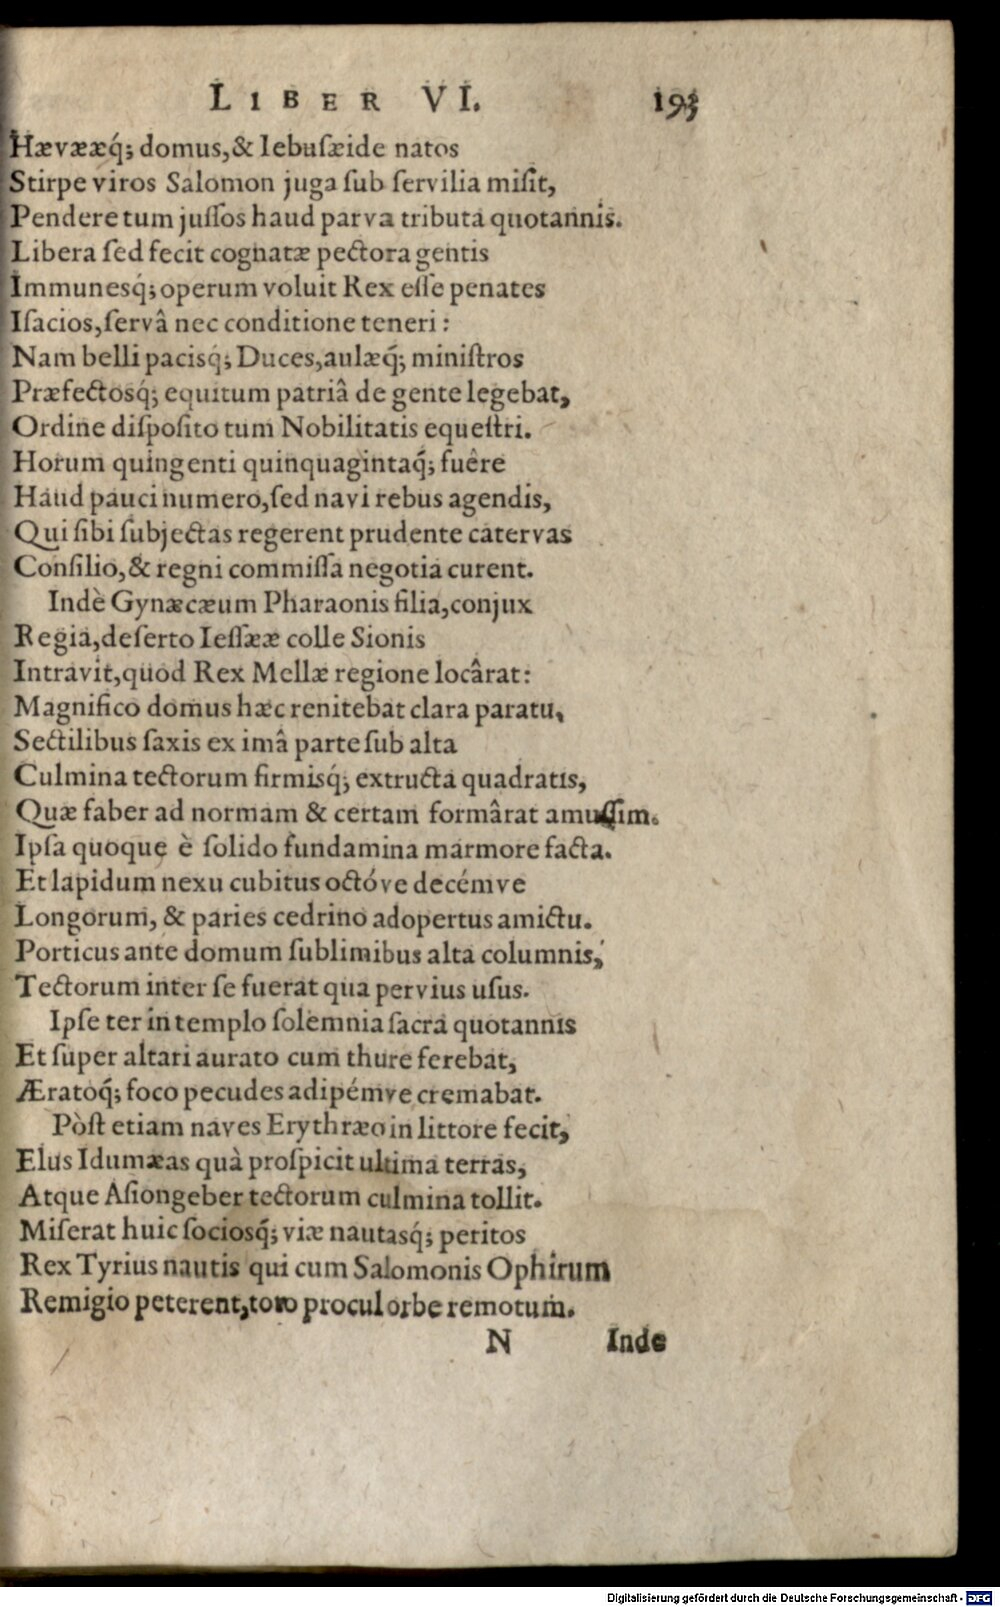 LIBER VI. 193
Hævææq́; domus, & Iebusæide natos
Stirpe viros Salomon juga sub servilia misit,
Pendere tum jussos haud parva tributa quotannis.
Libera sed fecit cognatæ pectora gentis
Immunesq́; operum voluit Rex esse penates
Isacios, servâ nec conditione teneri:
Nam belli pacisq́; Duces, aulæq́; ministros
Præfectosq́; equitum patriâ de gente legebat,
Ordine disposito tum Nobilitatis equestri.
Horum quingenti quinquagintaq́; fuêre
Haud pauci numero, sed navi rebus agendis,
Qui sibi subjectas regerent prudente catervas
Consilio, & regni commissa negotia curent.
Indè Gynæcæum Pharaonis filia, conjux
Regia, deserto Iessææ colle Sionis
Intravit, quod Rex Mellæ regione locârat:
Magnifico domus hæc renitebat clara paratu,
Sectilibus saxis ex imâ parte sub alta
Culmina tectorum firmisq́; extructa quadratis,
Quæ faber ad normam & certam formârat amussim.
Ipsa quoque è solido fundamina marmore facta.
Et lapidum nexu cubitus octóve decémve
Longorum, & paries cedrino adopertus amictu.
Porticus ante domum sublimibus alta columnis,
Tectorum inter se fuerat qua pervius usus.
Ipse ter in templo solemnia sacra quotannis
Et super altari aurato cum thure ferebat,
Æratoq́; foco pecudes adipémve cremabat.
Pòst etiam naves Erythræo in littore fecit,
Elus Idumæas quà prospicit ultima terras,
Atque Asiongeber tectorum culmina tollit.
Miserat huic sociosq́; viæ nautasq́; peritos
Rex Tyrius nautis qui cum Salomonis Ophirum
Remigio peterent, toto procul orbe remotum.
N Inde
Digitalisierung gefördert durch die Deutsche Forschungsgemeinschaft - DFG